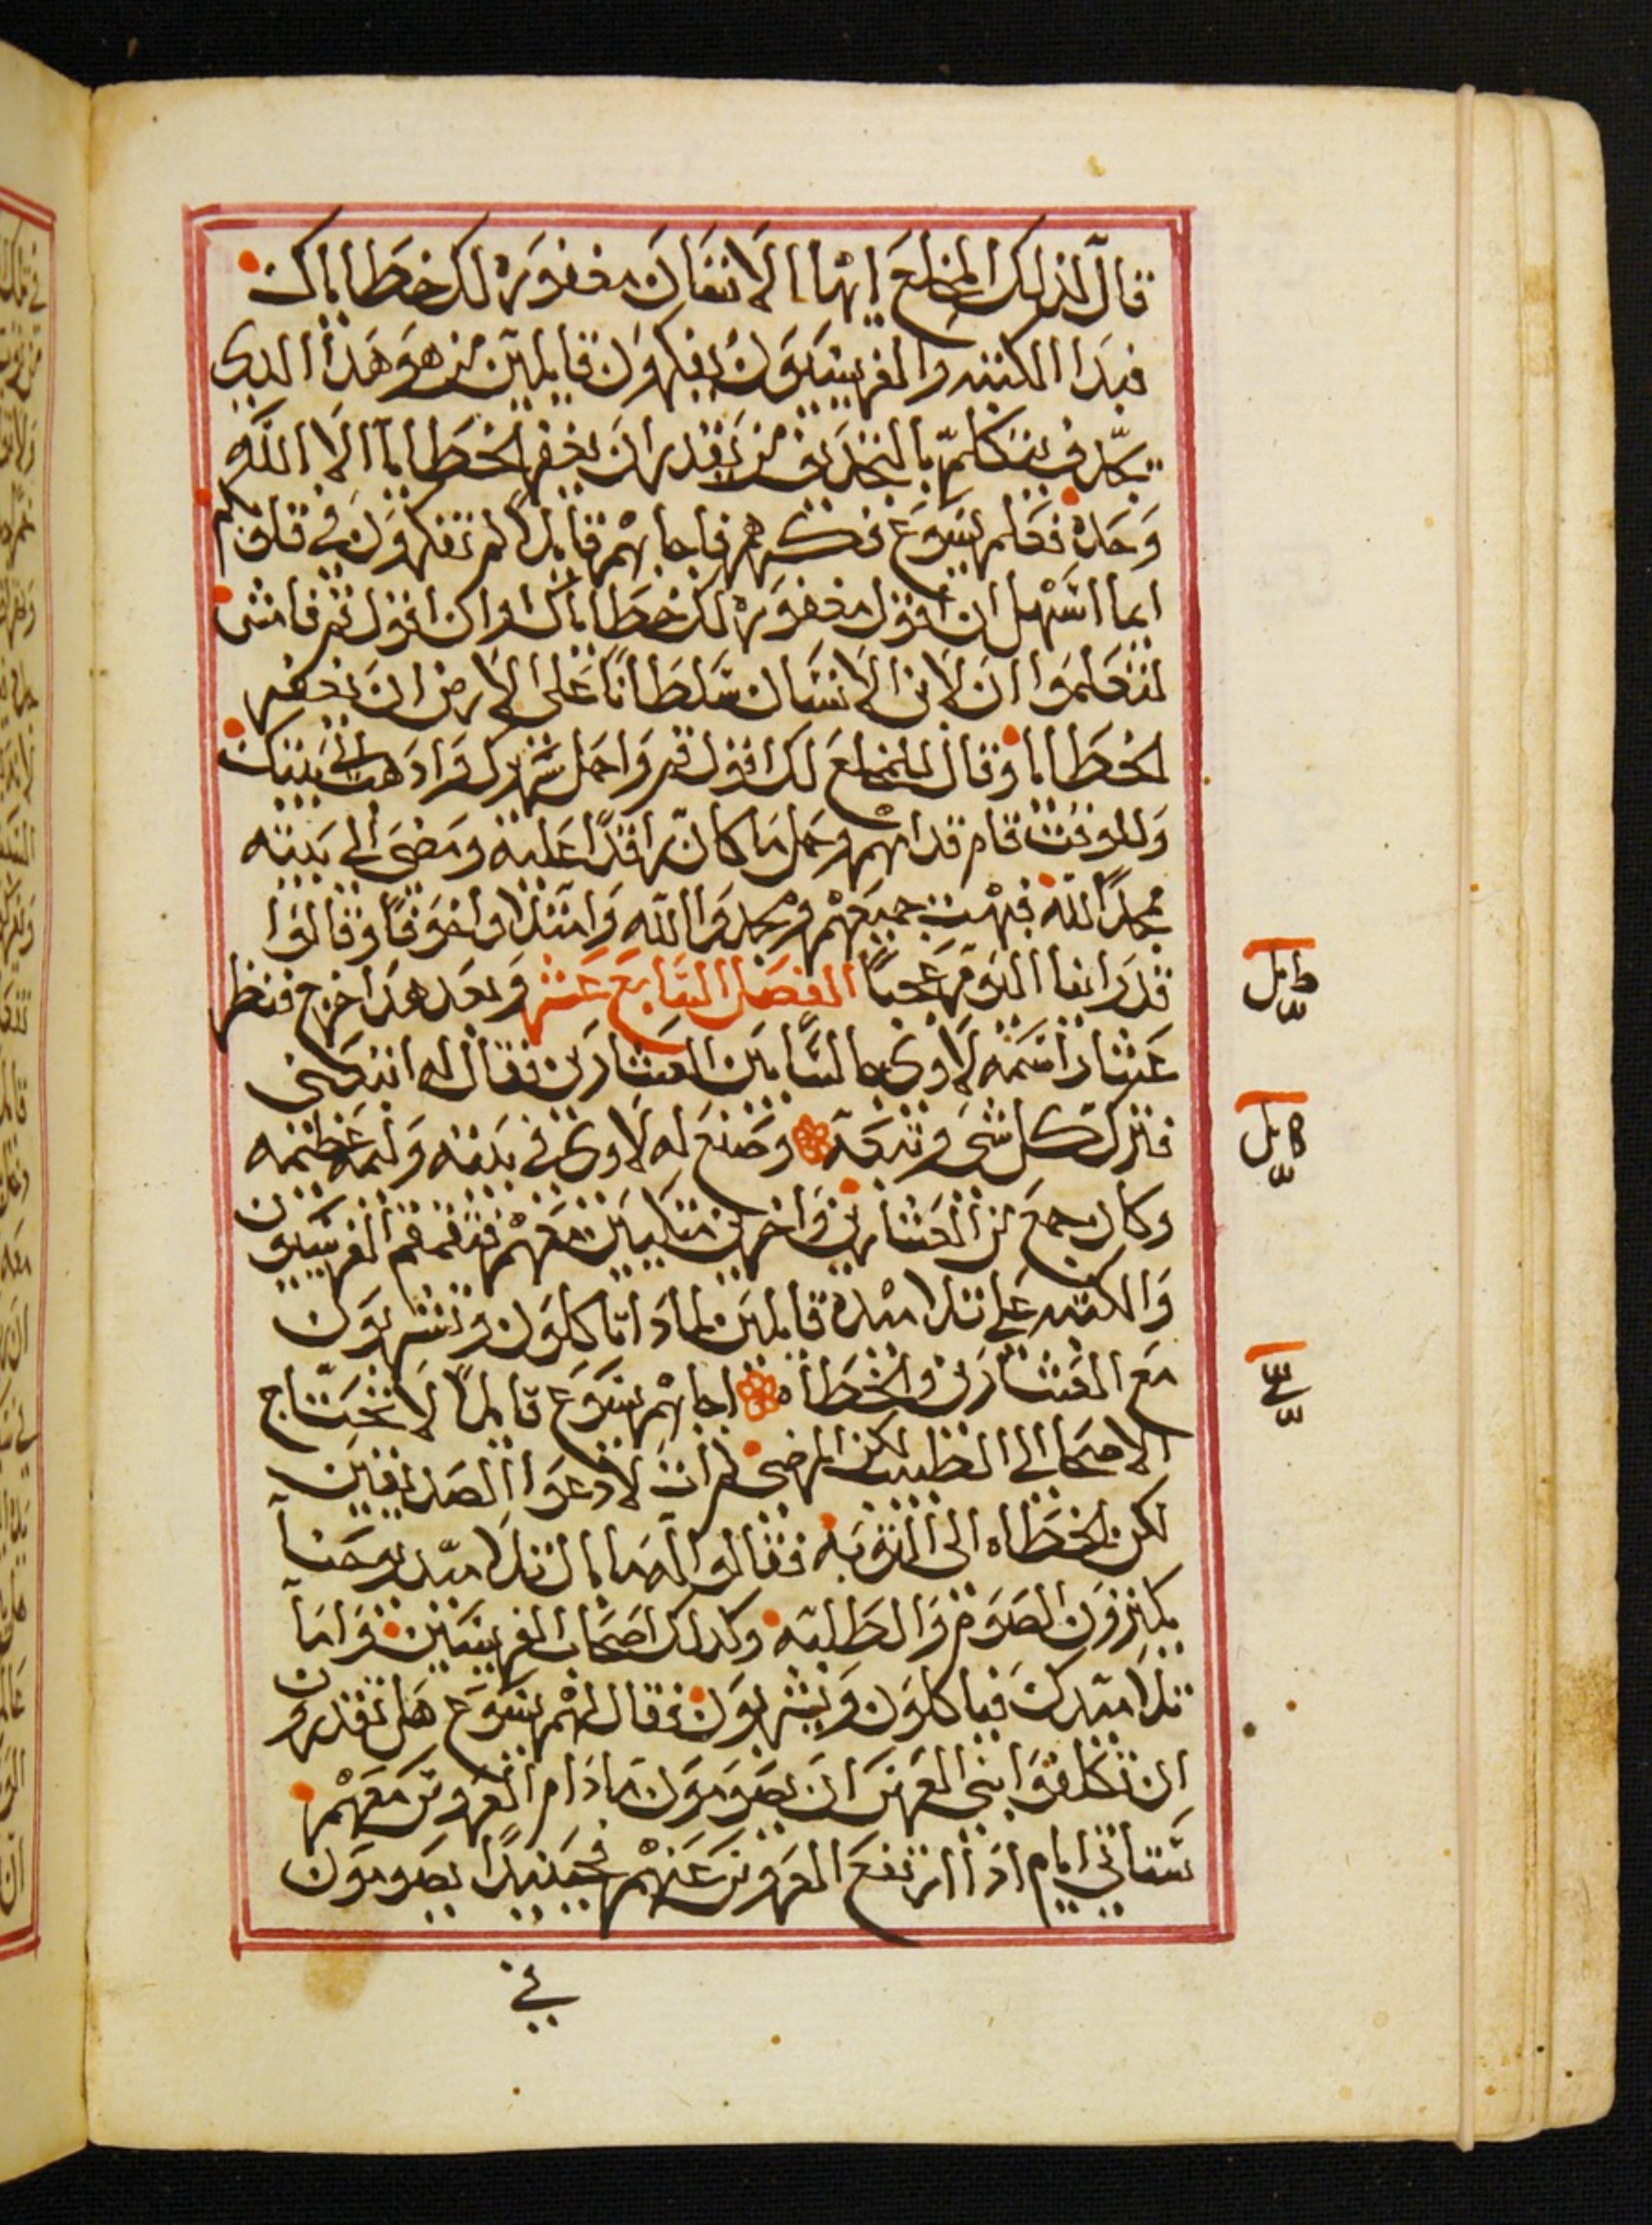 قال لذلك المخلع ايها الانسان مغفوره لك خطاياك
فبدا الكتبه والفريسيون يفكرون قايلين من هو هذا الدى
يجدف يتكلم بالتجديف من يقدر ان يغفر الخطايا الا الله
وحده فعلم يسوع فكرهم فاجابهم قايلا لم تفكرون في قلوبكم
ايما اسهل ان اقول مغفوره لك خطاياك او ان اقول قم فامشى
لتعلموا ان لابن الانسان سلطانا على الارض ان يغفر
الخطايا وقال للمخلع لك اقول قم واحمل سريرك وادهب الى بيتك
وللوقت قام قدامهم وحمل ما كان راقدا عليه ومضى الى بيته
ممجدا الله فبهت جميعهم ومجدوا الله وامتلاوا خوفا وقالوا
قد راينا اليوم عجبا الفصل السابع عشر وبعد هدا خرج فنظر
عشارا اسمه لاوى جالسا بين العشارين فقال له اتبعنى
فترك كل شى وتبعه وصنع له لاوى في بيته وليمه عظيمه
وكان جمع من العشارين واخرين متكيين معهم فتقمقم الفريسيون
والكتبه على تلاميده قايلين لمادا تاكلون وتشربون
مع العشارين والخطاه اجابهم يسوع قايلا لا تحتاج
الاصحا الى الطبيب لكن المرضى لم ات لادعوا الصديقين
لكن الخطاه الى التوبه فقالوا له ما بال تلاميد يوحنا
يكترون الصوم والطلبه وكدلك اصحاب الفريسيين واما
تلاميدك فياكلون ويشربون فقال لهم يسوع هل تقدرون
ان تكلفوا بنى العرس ان يصومون ما دام العروس معهم
ستاتي ايام ادا ارتفع العروس عنهم فحينيدا يصومون
في